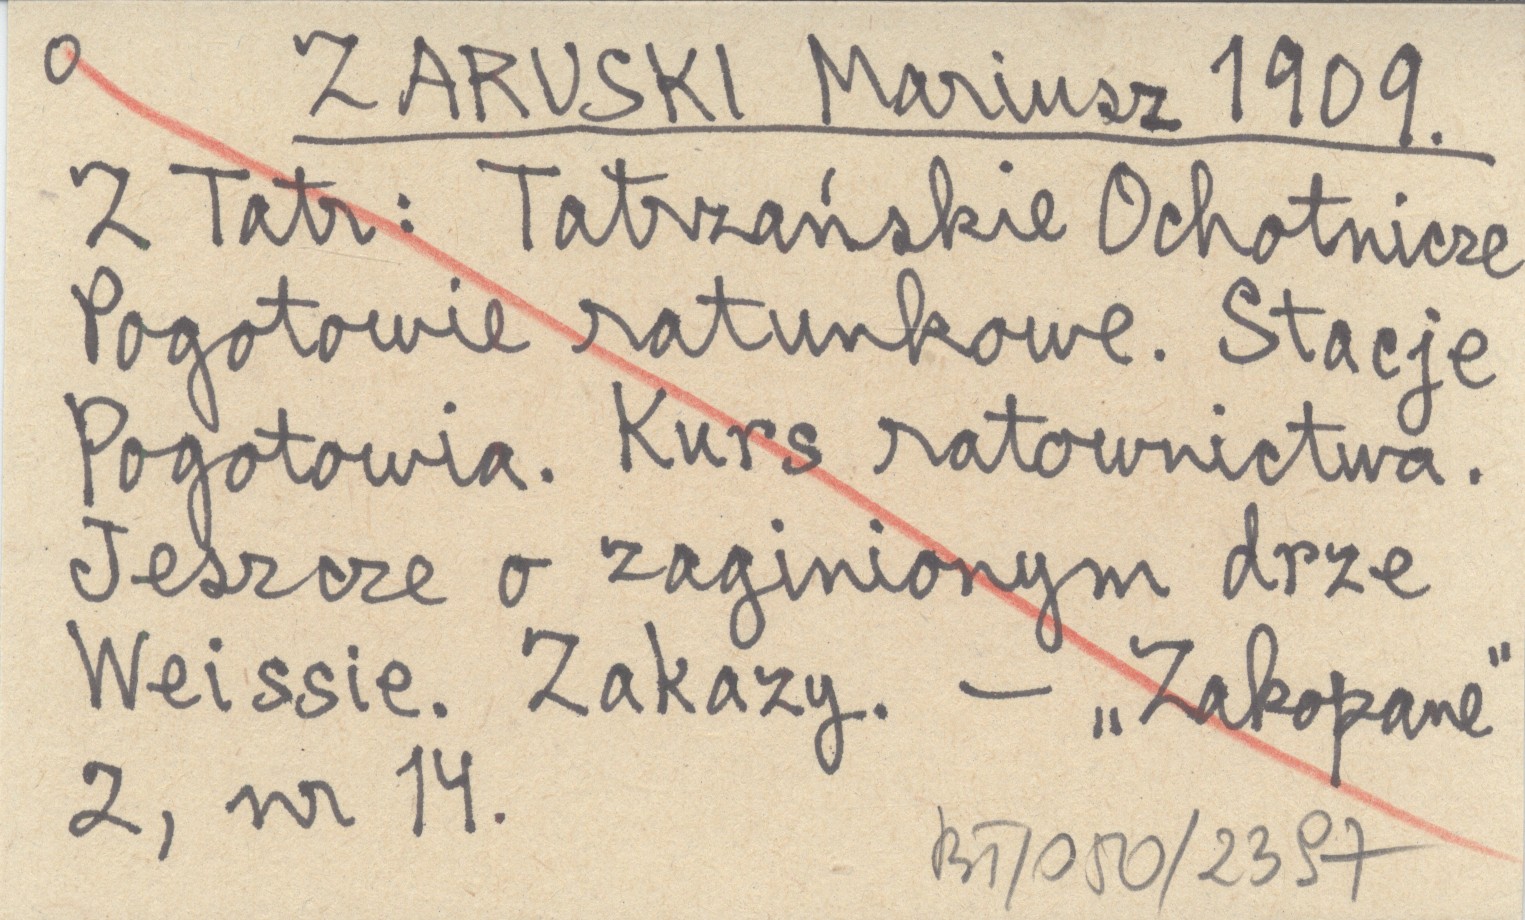 o ZARUSKI Mariusz 1909.
Z Tatr: Tatrzańskie Ochotnicze
Pogotowie ratunkowe. Stacje
Pogotowia. Kurs ratownictwa.
Jeszcze o zaginionym drze
Weissie. Zakazy. — „Zakopane"
2, nr 14.
BT/080/2397